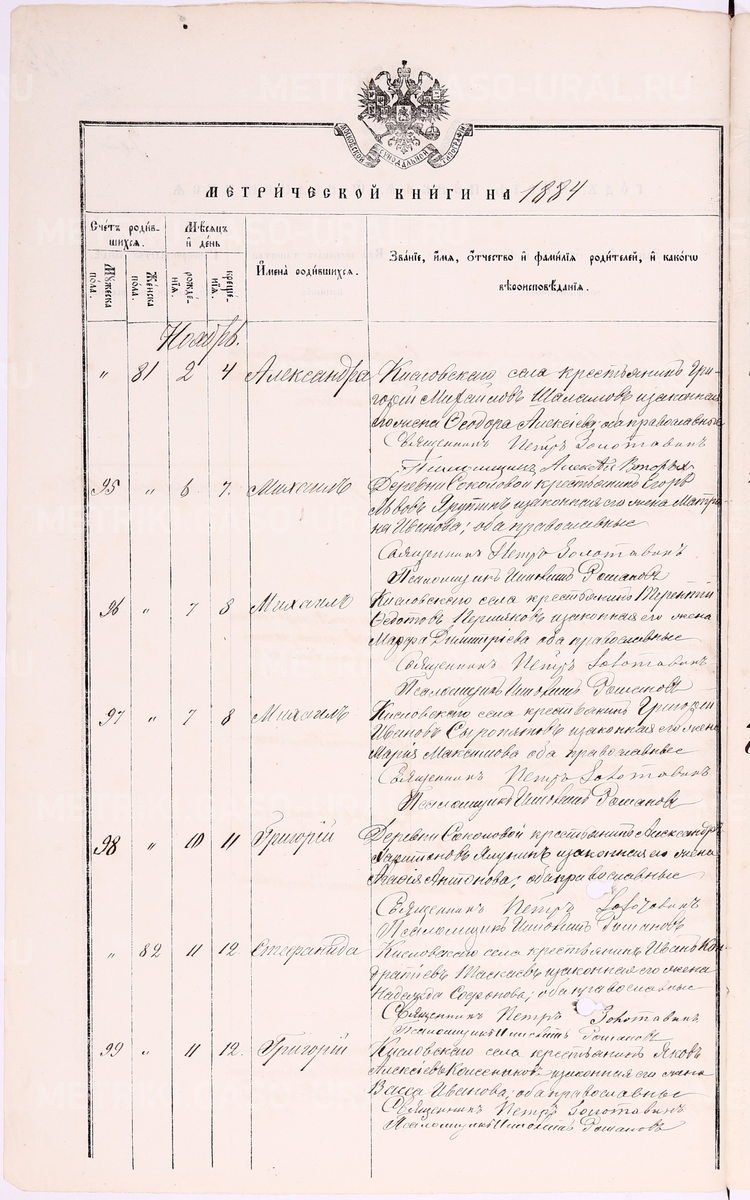 МОСКОВСКОЙ СѴНОДАЛЬНОЙ ТИПОГРАФІИ
МЕТРИ́ЧЕСКОЙ КНИ́ГИ НА 1884
Сче́тъ роди́в-
шихся.
Мѣ́сяцъ
и день
Му́жеска
пола.
Же́нска
пола.
рожде́-
нїя.
креще́-
нїя.
Имена̀ роди́вшихся.
Зва́нїе, и́мя, о́тчество и фами́лїя роди́телей, и како́гѡ
вѣроисповѣ́данїя.
Ноябрь.
" 81 2 4 Александра Кисловскаго села крестьянинъ Гри-
горій Михайловъ и законная
его жена Ѳеодора Алексіева; оба православные
Священникъ Петръ Золотавинъ
Псаломщикъ Алексѣй Вторыхъ
95 " 6 7. Михаилъ Деревни Соколовой крестьянинъ Егоръ
Львовъ и законная его жена Матро-
на Иванова; оба православные
Священникъ Петръ Золотавинъ
Псаломщикъ Романовъ
96 " 7 8 Михаилъ Кисловскаго села крестьянинъ Терентій
Ѳедотовъ Пермяковъ и законная его жена
Марѳа Димитріева оба православные
Священникъ Петръ Золотавинъ
Псаломщикъ Романовъ
97 " 7 8 Михаилъ Кисловскаго села крестьянинъ Григорій
Ивановъ Сыропятовъ и законная его жена
Марія Максимова оба православные
Священникъ Петръ Золотавинъ
Псаломщикъ Романовъ
98 " 10 11 Григорій Деревни Соколовой крестьянинъ Александръ
Харитоновъ и законная его жена
Агафія Антонова; оба православные
Священникъ Петръ Золотавинъ
Псаломщикъ Романовъ
" 82 11 12. Стефанида Кисловскаго села крестьянинъ Иванъ Кон-
дратіевъ Таскаевъ и законная его жена
Надежда Софонова; оба православные
Священникъ Петръ Золотавинъ
Псаломщикъ Романовъ
99 " 11 12. Григорій Кисловскаго села крестьянинъ Яковъ
Алексіевъ и законная его жена
Васса Иванова; оба православные
Священникъ Петръ Золотавинъ
Псаломщикъ Романовъ